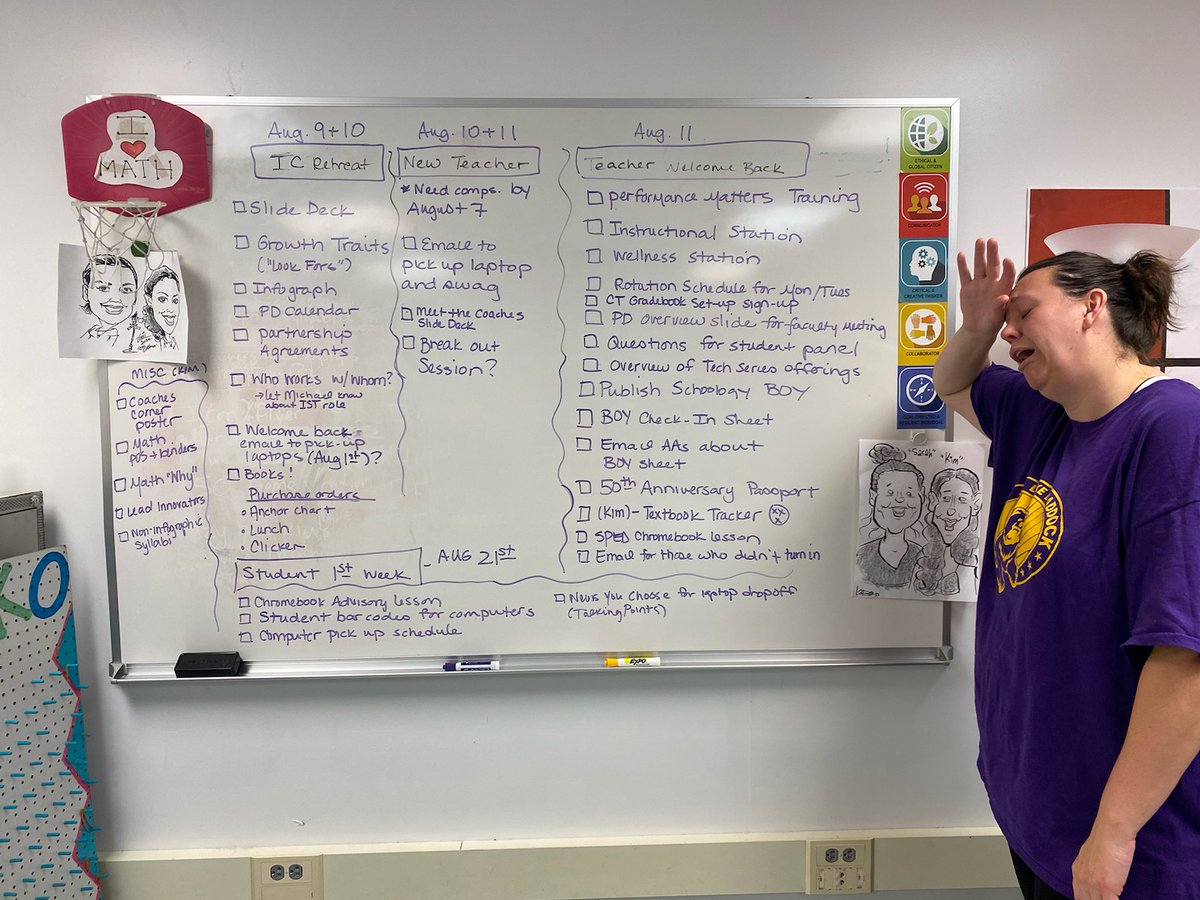 I
MATH
Aug. 9+10
IC Retreat
Slide Deck
Growth Traits
("Look Fors")
Infograph
PD Calendar
partnership
Agreements
Who works w/whom?
→let Michael know
about IST role
Welcome back
email to pick-up
laptops (Aug 1st)?
Books!
Purchase orders
• Anchor chart
• Lunch
• Clicker
Aug. 10+11
New Teacher
* Need comps. by
August 7
Email to
pick up laptop
and swag
Meet the coaches
Slide Deck
Break out
Session?
Aug. 11
Teacher Welcome Back
performance Matters Training
Instructional Station
Wellness Station
Rotation Schedule for Mon/Tues
CT Gradebook Set-up sign-up
PD overview slide for faculty meeting
Questions for student panel
Overview of Tech Series offerings
Publish Schoology BOY
BOY Check-In Sheet
Email AAs about
BOY sheet
50th Anniversary Passport
(Kim)- Textbook Tracker
SPED Chromebook lesson
Email for those who didn't turn in
MISC (KIM)
Coaches
corner
poster
Math
pos + binders
Math "Why"
Lead Innovators
Non-infographic
Syllabi
Student 1st Week
- AUG 21st
Chromebook Advisory lesson
Student bar codes for computers
Computer pick up schedule
News You Choose for laptop dropoff
(Talking Points)
ETHICAL &
GLOBAL CITIZEN
COMMUNICATOR
CRITICAL &
CREATIVE THINKER
COLLABORATOR
GOAL-DIRECTED &
RESILIENT INDIVIDUAL
"Sarah" "Kim"
EXPO
KO